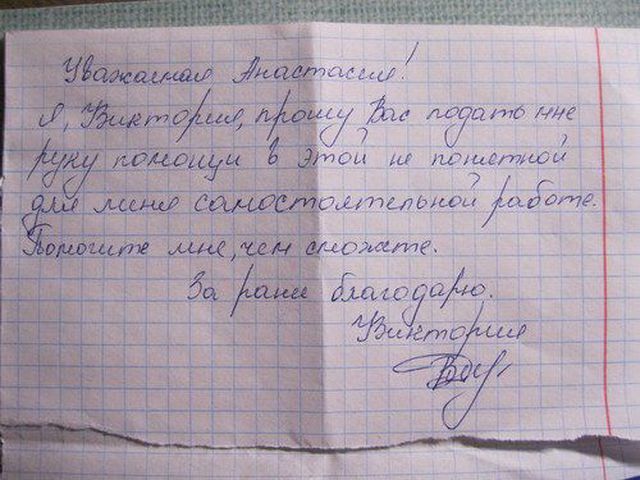 Уважаемая Анастасия!
Я, Виктория, прошу Вас подать мне
руку помощи в этой не понятной
для меня самостоятельной работе.
Помогите мне, чем сможете.
За рание благодарю.
Виктория